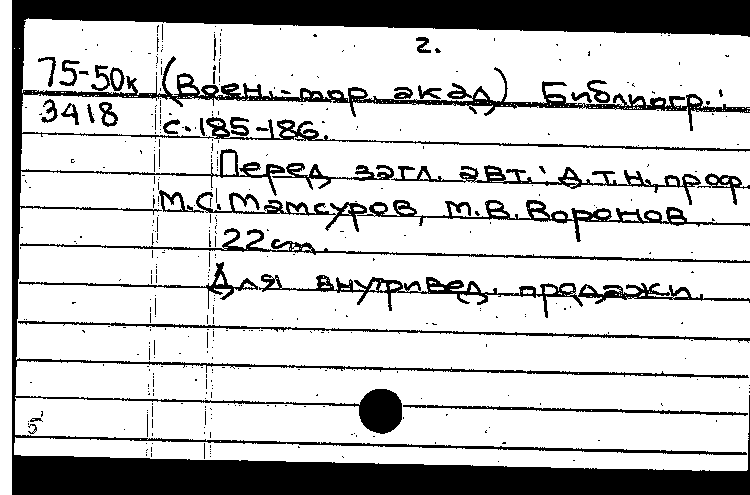 2.
75-50к (Воен.-мор. акад) Библиогр.:
3418 с. 185-186.
Перед загл. авт.: Д.т.н., проф.
М.С. Мамсуров, М.В. Воронов
22 см.
Для внутривед. продажи.
5